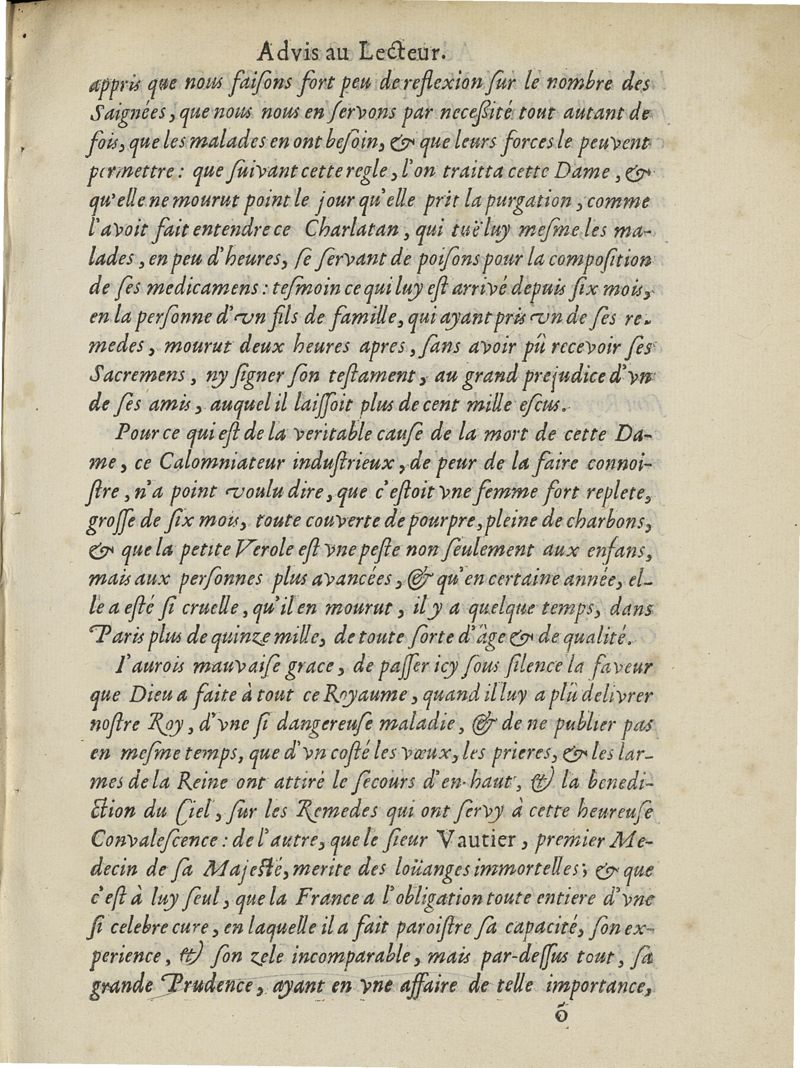 Advis au Lecteur.
appris que nous faiſons fort peu de reflexion ſur le nombre des
Saignées, que nous nous en ſervons par neceſſité tout autant de
fois, que les malades en ont beſoin, & que leurs forces le peuvent
permettre : que ſuivant cette regle, l'on traitta cette Dame, &
qu'elle ne mourut point le jour qu'elle prit la purgation, comme
l'avoit fait entendre ce Charlatan, qui tuë luy meſme les ma-
lades, en peu d'heures, ſe ſervant de poiſons pour la compoſition
de ſes medicamens : teſmoin ce qui luy eſt arrivé depuis ſix mois,
en la perſonne d'vn fils de famille, qui ayant pris vn de ſes re-
medes, mourut deux heures apres, ſans avoir pû recevoir ſes
Sacremens, ny ſigner ſon teſtament, au grand prejudice d'vn
de ſes amis, auquel il laiſſoit plus de cent mille eſcus.
Pour ce qui eſt de la veritable cauſe de la mort de cette Da-
me, ce Calomniateur induſtrieux, de peur de la faire connoi-
ſtre, n'a point voulu dire, que c'eſtoit vne femme fort replete,
groſſe de ſix mois, toute couverte de pourpre, pleine de charbons,
& que la petite Verole eſt vne peſte non ſeulement aux enfans,
mais aux perſonnes plus avancées, & qu'en certaine année, el-
le a eſté ſi cruelle, qu'il en mourut, il y a quelque temps, dans
Paris plus de quinze mille, de toute ſorte d'âge & de qualité.
I'aurois mauvaiſe grace, de paſſer icy ſous ſilence la faveur
que Dieu a faite à tout ce Royaume, quand il luy a plû delivrer
noſtre Roy, d'vne ſi dangereuſe maladie, & de ne publier pas
en meſme temps, que d'vn coſté les vœux, les prieres, & les lar-
mes de la Reine ont attiré le ſecours d'en-haut, & la benedi-
ction du Ciel, ſur les Remedes qui ont ſervy à cette heureuſe
Convaleſcence : de l'autre, que le ſieur Vautier, premier Me-
decin de ſa Majeſté, merite des loüanges immortelles ; & que
c'eſt à luy ſeul, que la France a l'obligation toute entiere d'vne
ſi celebre cure, en laquelle il a fait paroiſtre ſa capacité, ſon ex-
perience, & ſon zele incomparable, mais par-deſſus tout, ſa
grande Prudence, ayant en vne affaire de telle importance,
õ